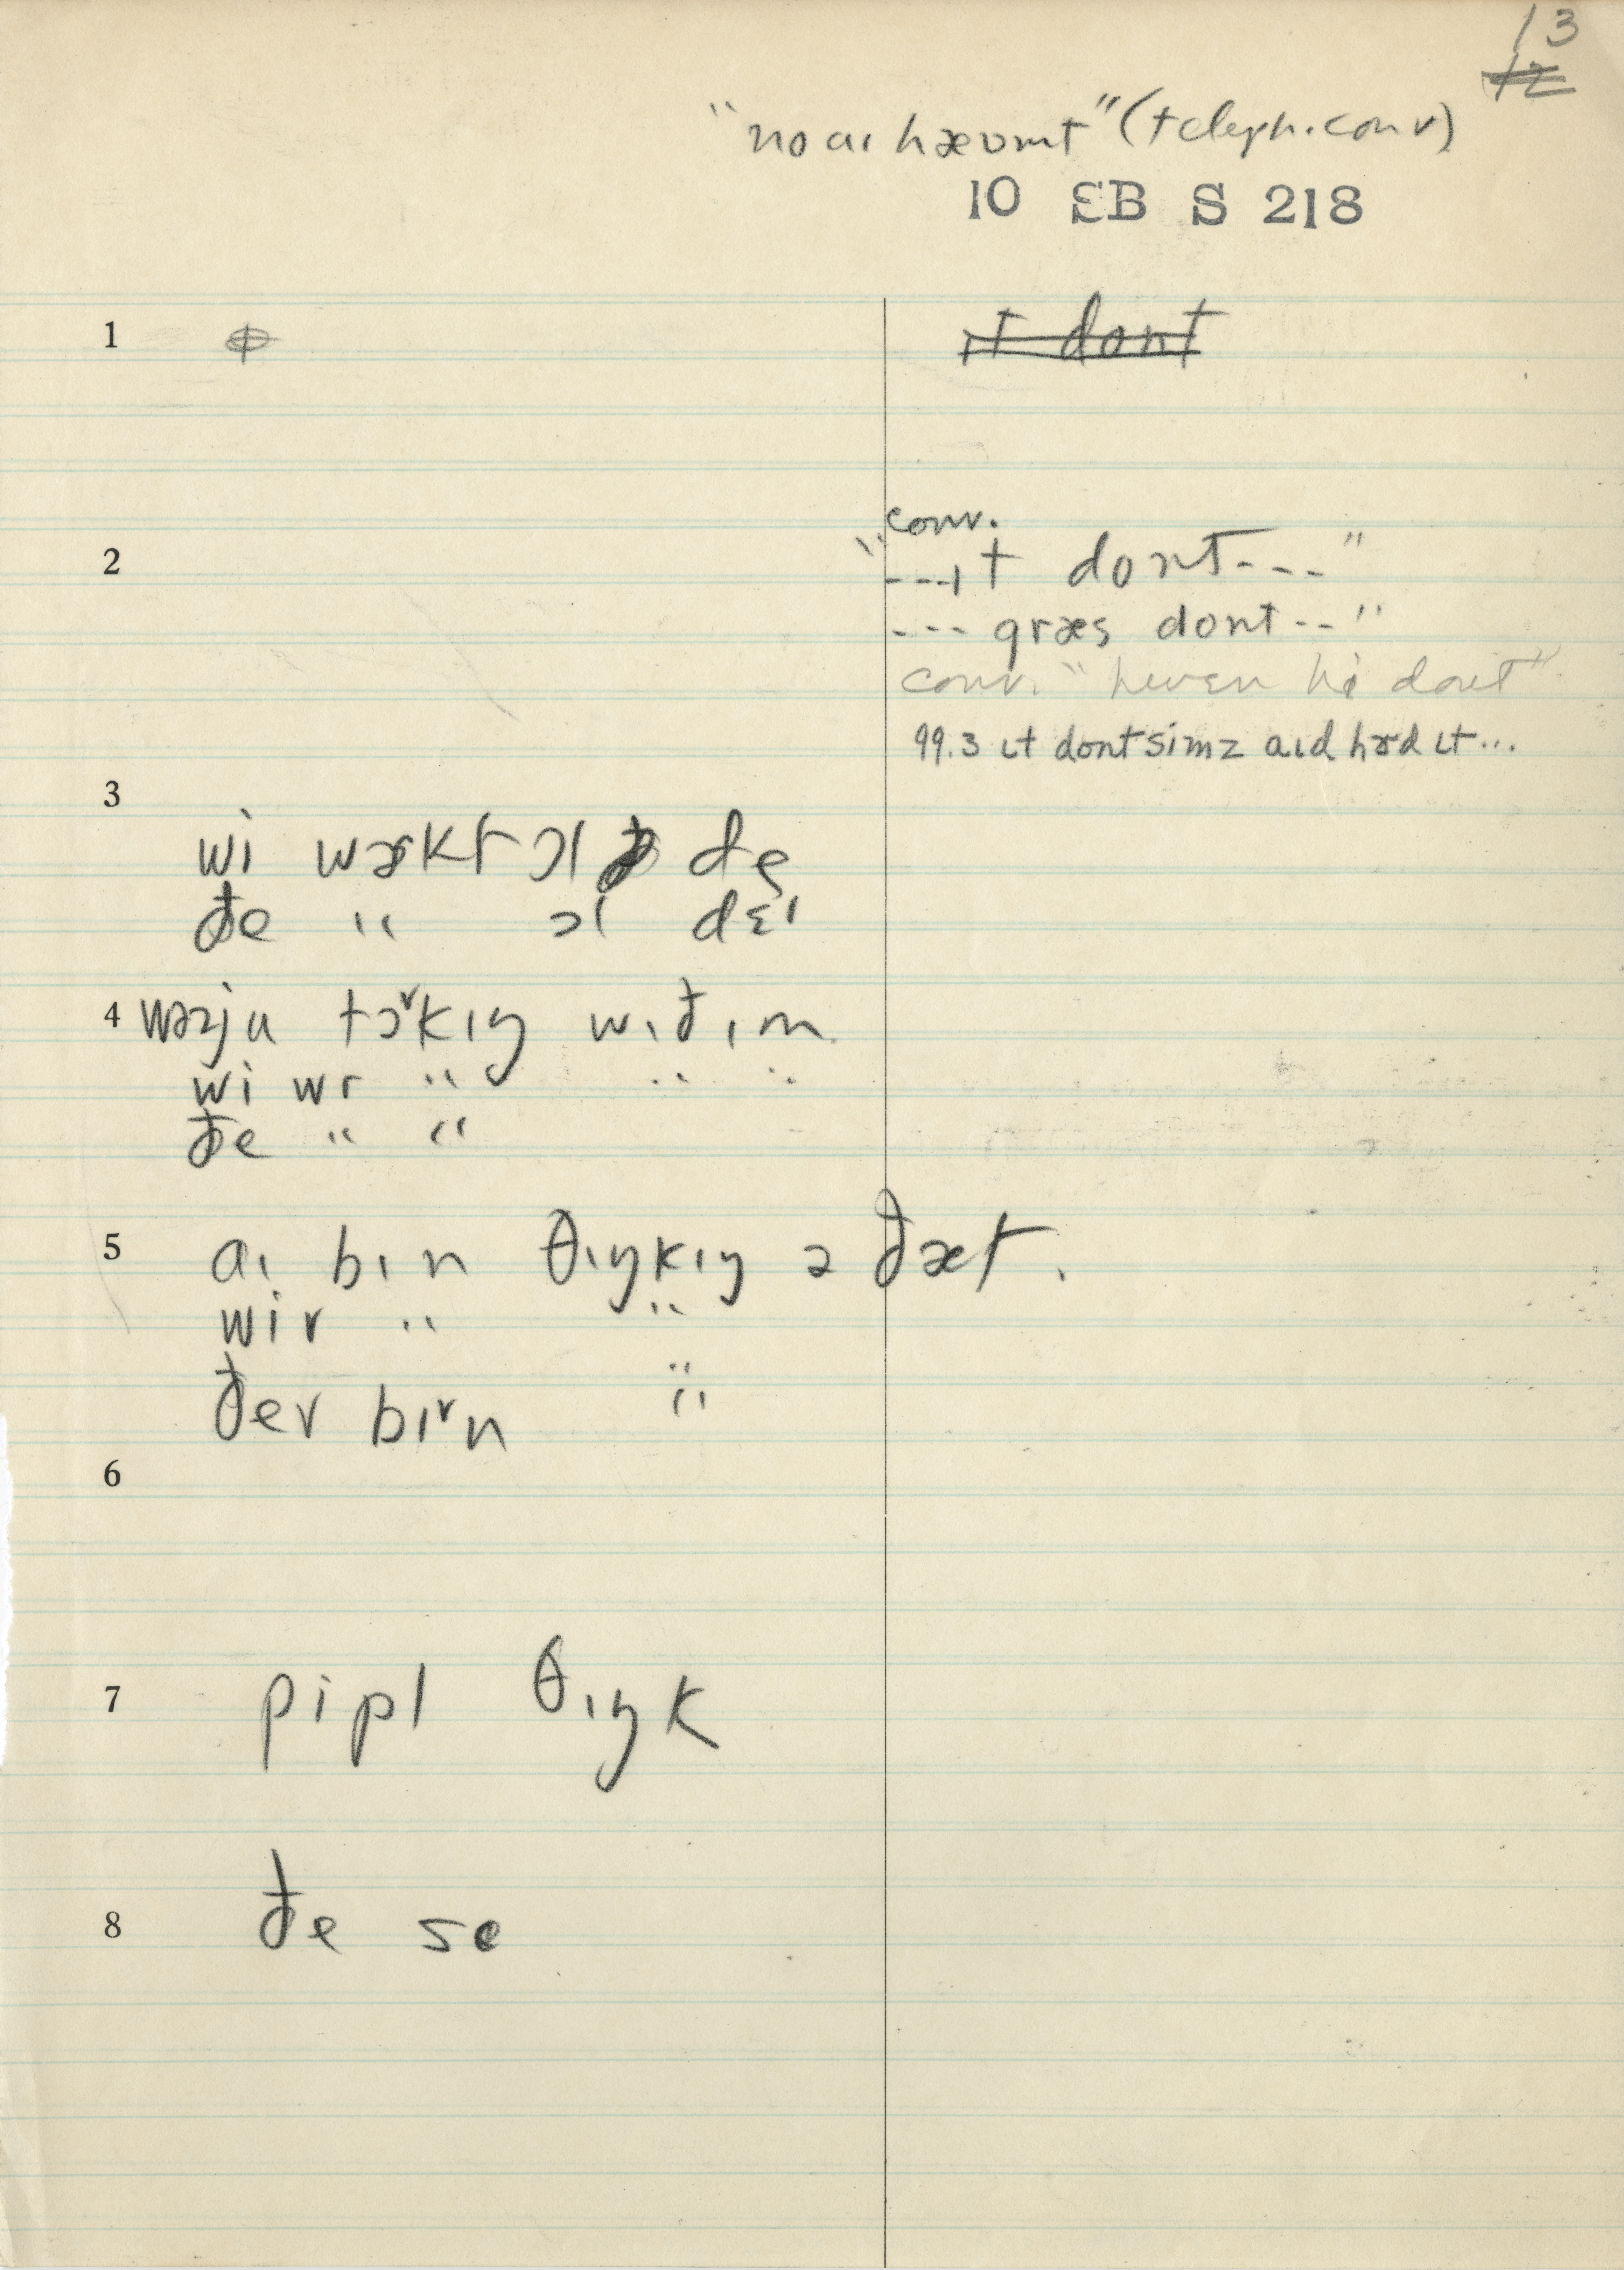 13
12
"no aɪ hævṃt" (teleph. conv)
10 ƐB S 218
1 ɸ
ɪt dont
conv.
2 "---ɪt dont---"
--- græs dont --"
conv. "hɛvɛn hi dont"
99.3 ɪt dont simz aɪd hɝd ɪt...
3
wi wɝkt ɔl de
ðe " ɔl dɛɪ
4 wəzju tɔᵛkɪŋ wɪðɪm
wi wr " " "
ðe " "
5 aɪ bɪn θɪŋkɪŋ ə ðæt.
wir " "
ðer bɪᵛn "
6
7 pipl θɪŋk
8 ðe se